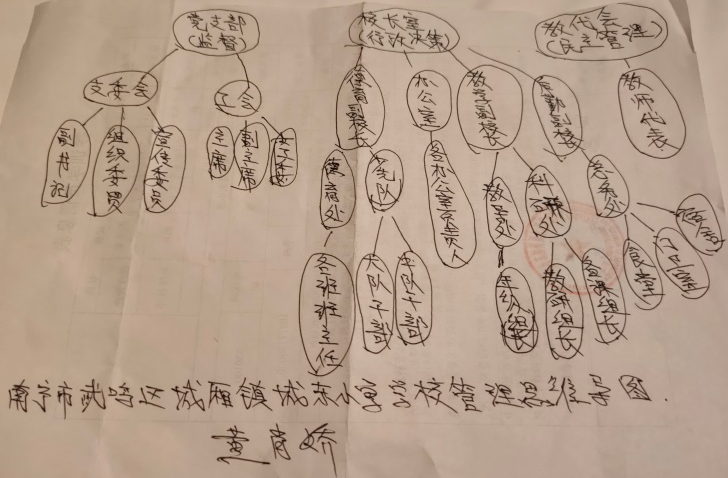 党支部
(监督)
校长室
(行政决策)
教代会
(民主管理)
支委会
工会
德育副校长
办公室
教学副校
后勤副校
教师代表
副书记
组织委员
宣传委员
主席
副主席
德育处
少先队
各办公室负责人
教导处
科研处
总务处
各班班主任
大队干部
中队干部
年级组长
教研组长
备课组长
食堂
南宁市武鸣区城厢镇城东小学学校管理思维导图.
黄育娇